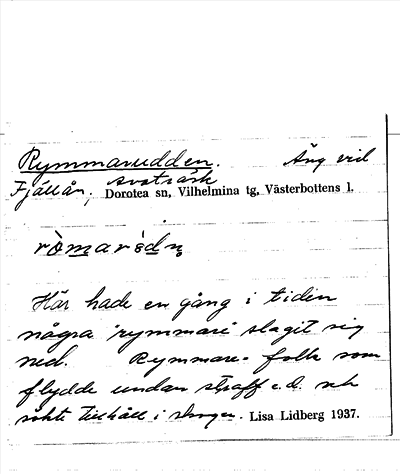 Rymmarudden. Äng vid
Fjällån, Avaträsk
Dorotea sn, Vilhelmina tg, Västerbottens l.
Här hade en gång i tiden
några "rymmare" slagit sig
ned. Rymmare = folk som
flydde undan straff e.d. och
sökte tillhåll i skogen. Lisa Lidberg 1937.